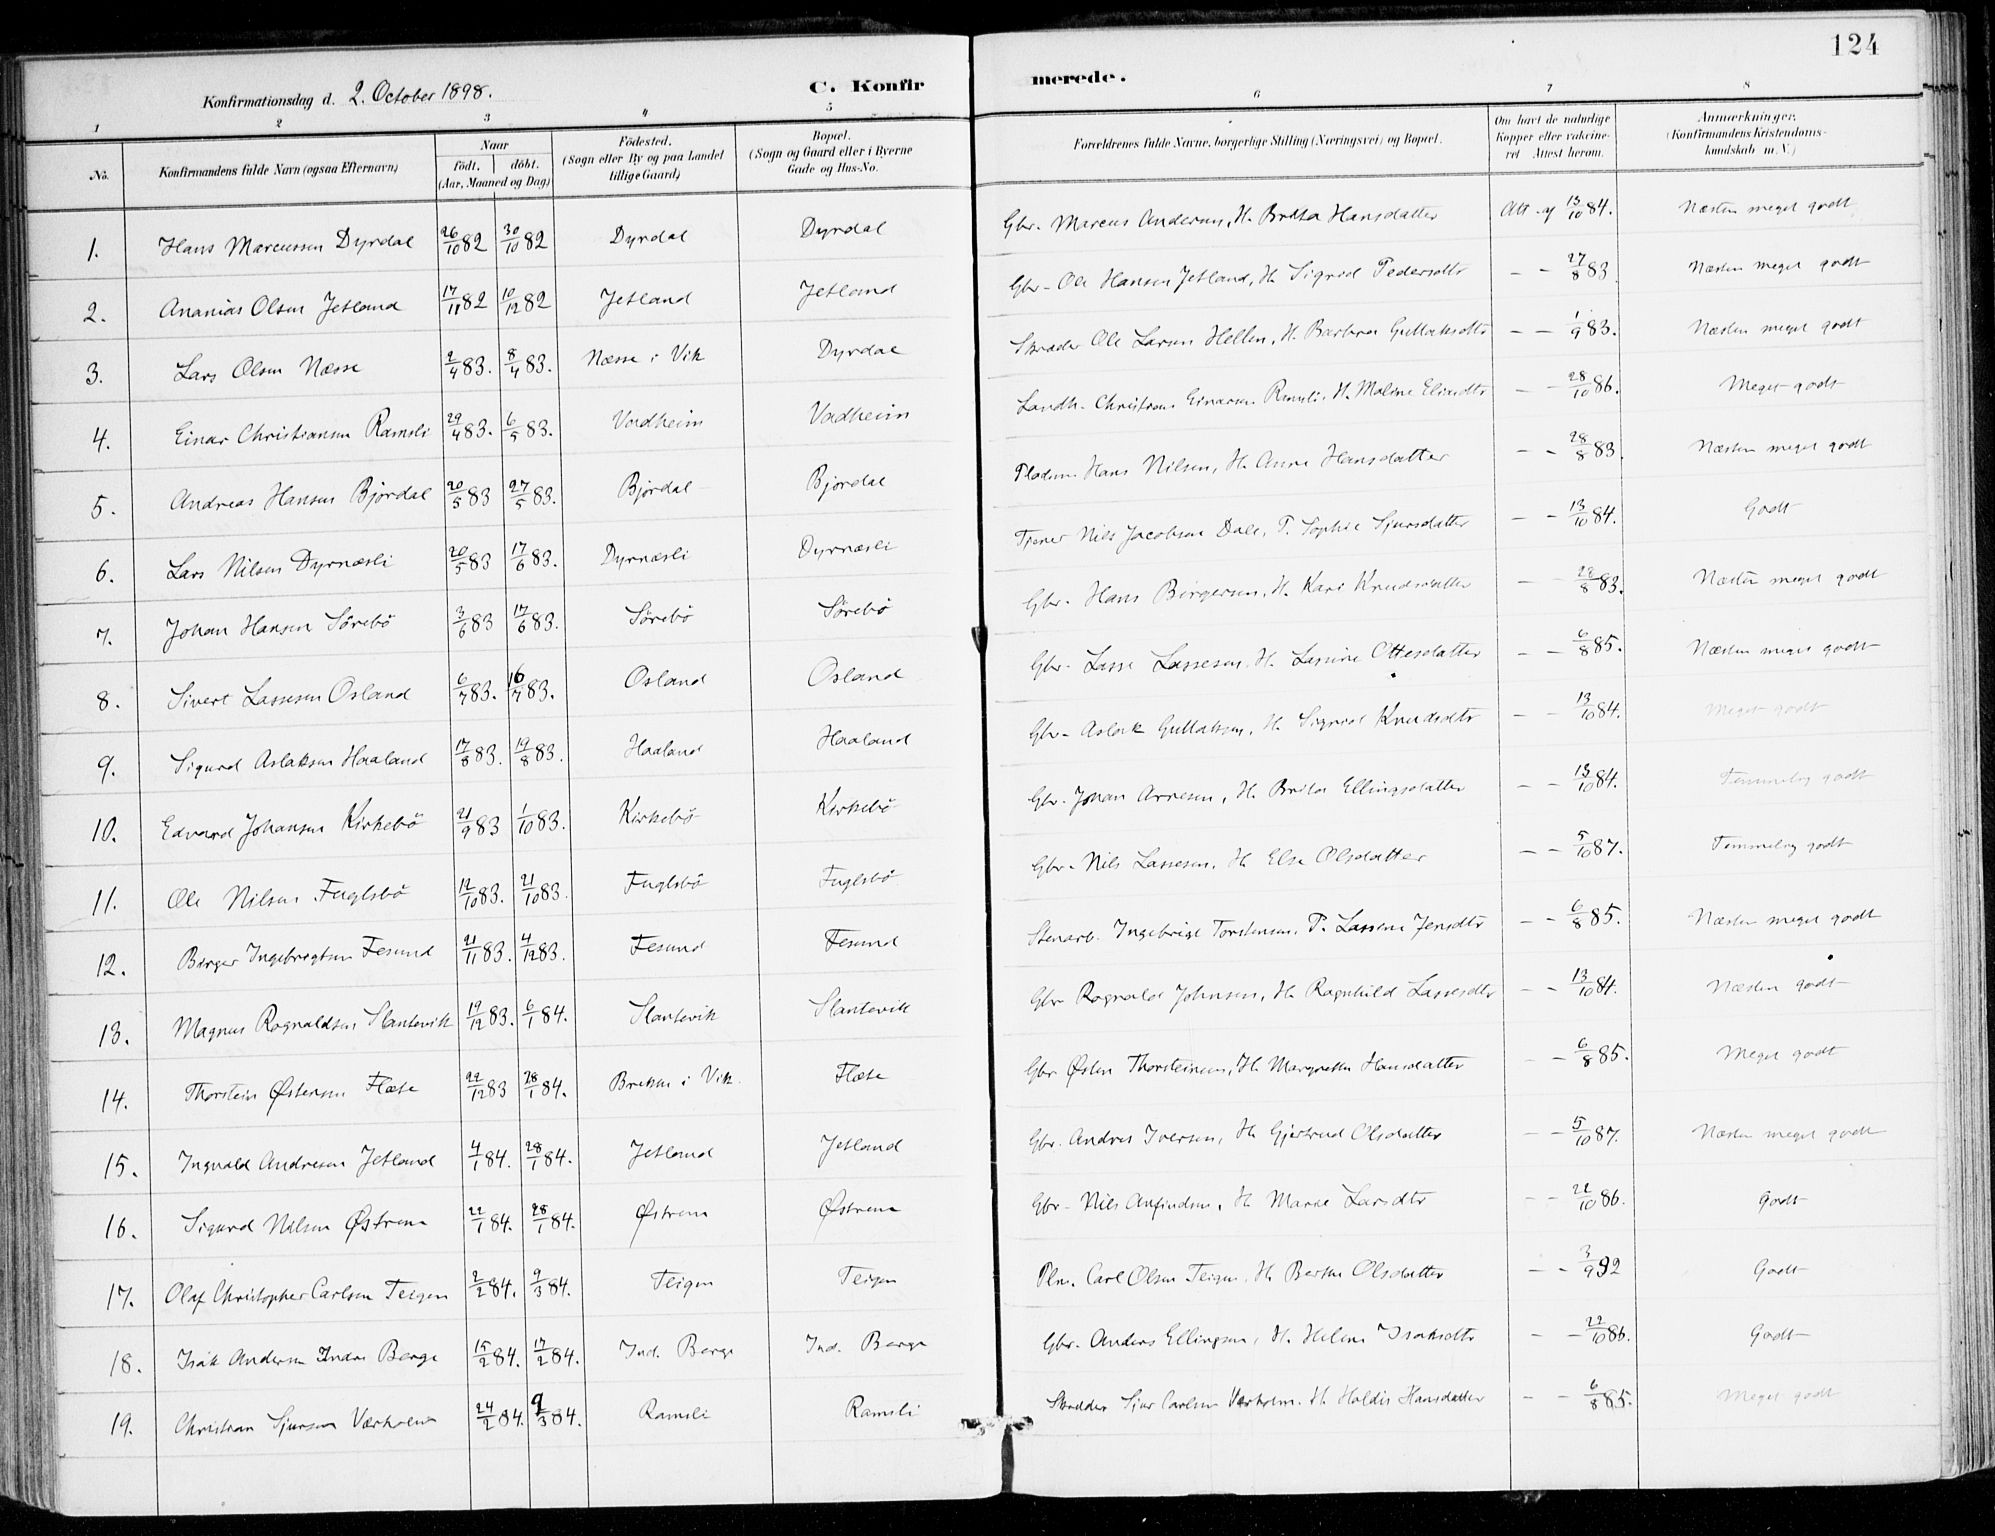 124
Konfirmationsdag d. 2. October 1898.
C. Konfirmerede.
1 2 3 4 5 6 7 8
No. Konfirmandens fulde Navn (ogsaa Efternavn) Naar födt. döbt. (Aar, Maaned og Dag) Födested. (Sogn eller By og paa Landet tillige Gaard) Bopæl. (Sogn og Gaard eller i Byerne Gade og Hus-No. Forældrenes fulde Navne, borgerlige Stilling (Næringsvei) og Bopæl. Om havt de naturlige Kopper eller vakcineret. Attest herom. Anmærkninger. (Konfirmandens Kristendomskundskab m. V.)
1. Hans Marcussen Dyrdal 26/10 82 30/10 82 Dyrdal Dyrdal Gbr. Marcus Andersen, H. Britta Hansdatter Att. af 13/10 84. Næsten meget godt
2. Ananias Olsen Jetland 17/11 82 10/12 82 Jetland Jetland Gbr. Ole Hansen Jetland, H. Sigrid Pedersdtr - - 27/8 83. Næsten meget godt
3. Lars Olsen Næsse 2/4 83. 8/4 83. Næsse i Vik Dyrdal Skrædder Ole Larsen Hellen, H. Barbra Gullaksdtr - - 1/9 83. Næsten meget godt
4. Einar Christiansen Ramsli 29/4 83. 6/5 83. Vadheim Vadheim Landh. Christian Einarsen Ramsli, H. Maline Eliasdtr - - 28/10 86. Meget godt
5. Andreas Hansen Bjordal 20/5 83 27/5 83. Bjordal Bjordal Pladsm. Hans Nilsen, H. Anne Hansdatter - - 28/8 83. Næsten meget godt
6. Lars Nilsen Dyrnæsli 20/5 83 17/6 83. Dyrnæsli Dyrnæsli Tjener Nils Jacobsen Dale, P. Sophie Sjursdatter - - 13/10 84. Godt
7. Johan Hansen Sörebö 3/6 83 17/6 83. Sörebö Sörebö Gbr. Hans Birgersen, H. Kari Knudsdatter - 28/8 83. Næsten meget godt
8. Sivert Lassesen Osland 6/7 83. 16/7 83. Osland Osland Gbr. Lasse Lassesen, H. Lassine Ottesdatter - - 6/8 85. Næsten meget godt
9. Sigurd Aslaksen Haaland 17/8 83. 19/8 83. Haaland Haaland Gbr. Aslak Gullaksen, H. Sigrid Knudsdtr - - 13/10 84. Meget godt
10. Edvard Johansen Kirkebö 21/9 83 1/10 83. Kirkebö Kirkebö Gbr. Johan Arnesen, H. Brita Ellingsdatter - - 13/10 84. Temmelig godt
11. Ole Nilsen Fuglsbö 12/10 83. 21/10 83. Fuglsbö Fuglsbö Gbr. Nils Lassesen, H. Else Olsdatter - - 5/10 87. Temmelig godt
12. Birger Ingebrigtsen Fesund 21/11 83. 4/12 83. Fesund Fesund Stenarb. Ingebrigt Torstensen, P. Lassene Jensdtr - - 6/8 85. Næsten meget godt
13. Magnus Rognaldsen Slantevik 19/12 83. 6/1 84. Slantevik Slantevik Gbr Rognald Johnsen, H. Ragnhild Lassesdtr - - 13/10 84. Næsten godt
14. Thorstein Østensen Flæte 22/12 83 28/1 84. Brekke i Vik. Flæte Gbr Østen Thorsteinsen, H. Margrethe Hansdatter - - 6/8 85. Meget godt
15. Ingvald Andresen Jetland 4/1 84. 28/1 84. Jetland Jetland Gbr. Andres Iversen, H. Gjertrud Olsdatter - - 5/10 87. Næsten meget godt
16. Sigurd Nilsen Østrem 22/1 84. 28/1 84. Østrem Østrem Gbr. Nils Anfindsen, H. Marie Larsdtr - - 22/10 86. Godt
17. Olaf Christopher Carlsen Teigen 2/2 84. 9/3 84. Teigen Teigen Plm. Carl Olsen Teigen, H. Berthe Olsdatter - - 3/9 92 Godt
18. Isak Andersen Indre Berge 15/2 84. 17/2 84. Ind. Berge Ind. Berge Gbr. Anders Ellingsen, H. Helene Isaksdtr - - 22/10 86. Godt
19. Christian Sjursen Værholm 24/2 84. 9/3 84. Ramsli Ramsli Skrædder Sjur Carlsen Værholm, H. Haldis Hansdatter - - 6/8 85. Meget godt